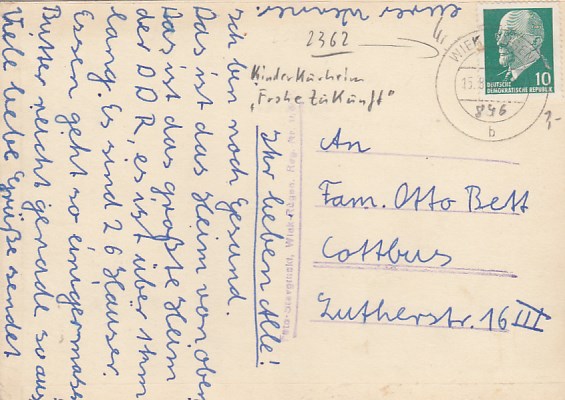 Ihr lieben Alle!
Ich bin noch gesund.
Das ist das Heim von oben
Das ist das größte Heim
der DDR, es ist über 1 km
lang. Es sind 26 Häuser.
Essen geht so einigermaßen
Butter reicht gerade so aus
Viele liebe Grüße sendet
Eurer Werner.
2362
Kinderkurheim
"Frohe Zukunft"
WIEK
15.
896
b
DEUTSCHE
DEMOKRATISCHE REPUBLIK
10
3,-
An
Fam. Otto Bett
Cottbus
Lutherstr. 16 III
Wiek-Rügen, Reg. Nr.